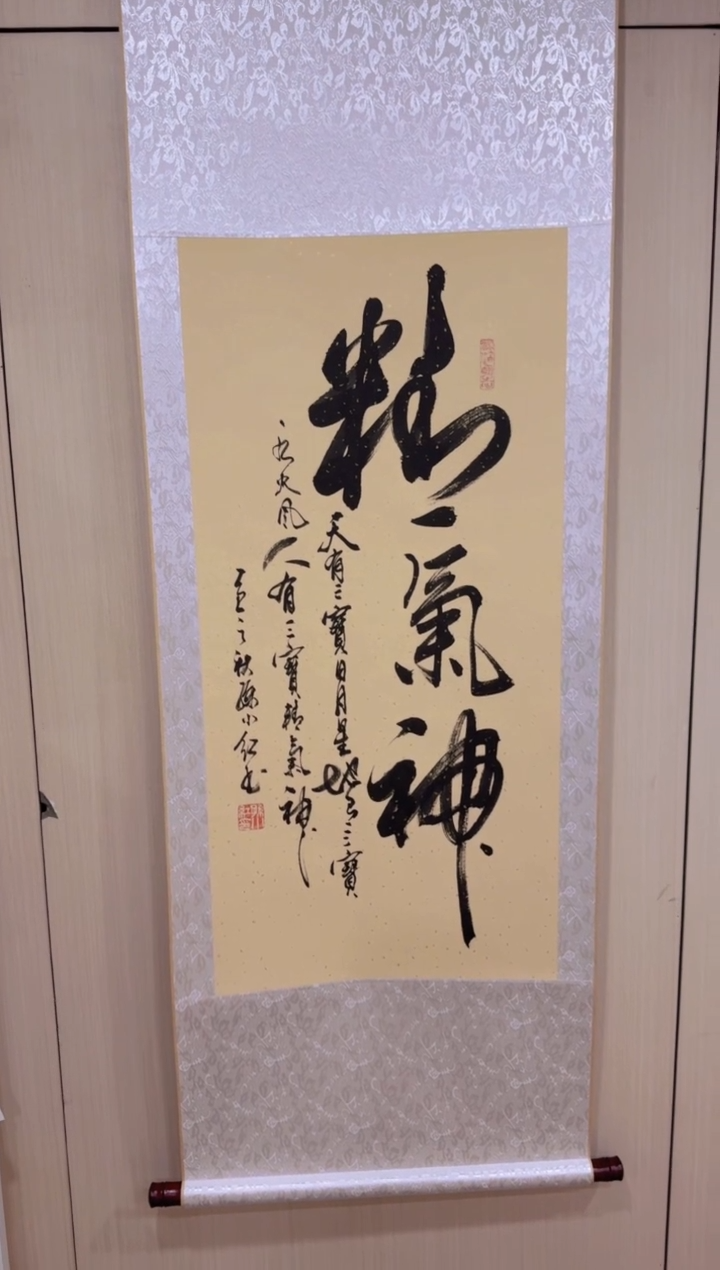 精氣神
天有三寶日月星地有三寶
水火风人有三寶精氣神
之秋小红书